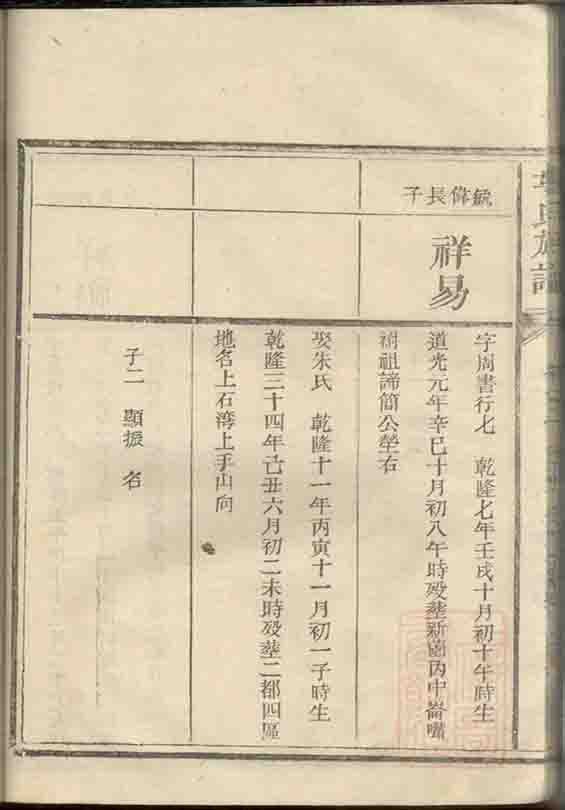 氏族譜
毓偉長子
祥易
字周書行七 乾隆七年壬戌十月初十午時生
道光元年辛巳十月初八午時殁塟新嗇内中崙嘴
祔祖諦簡公塋右
娶朱氏 乾隆十一年丙寅十一月初一子時生
乾隆三十四年己丑六月初二未時殁塟二都四區
地名上石湾上手山向
子二 顯振 名